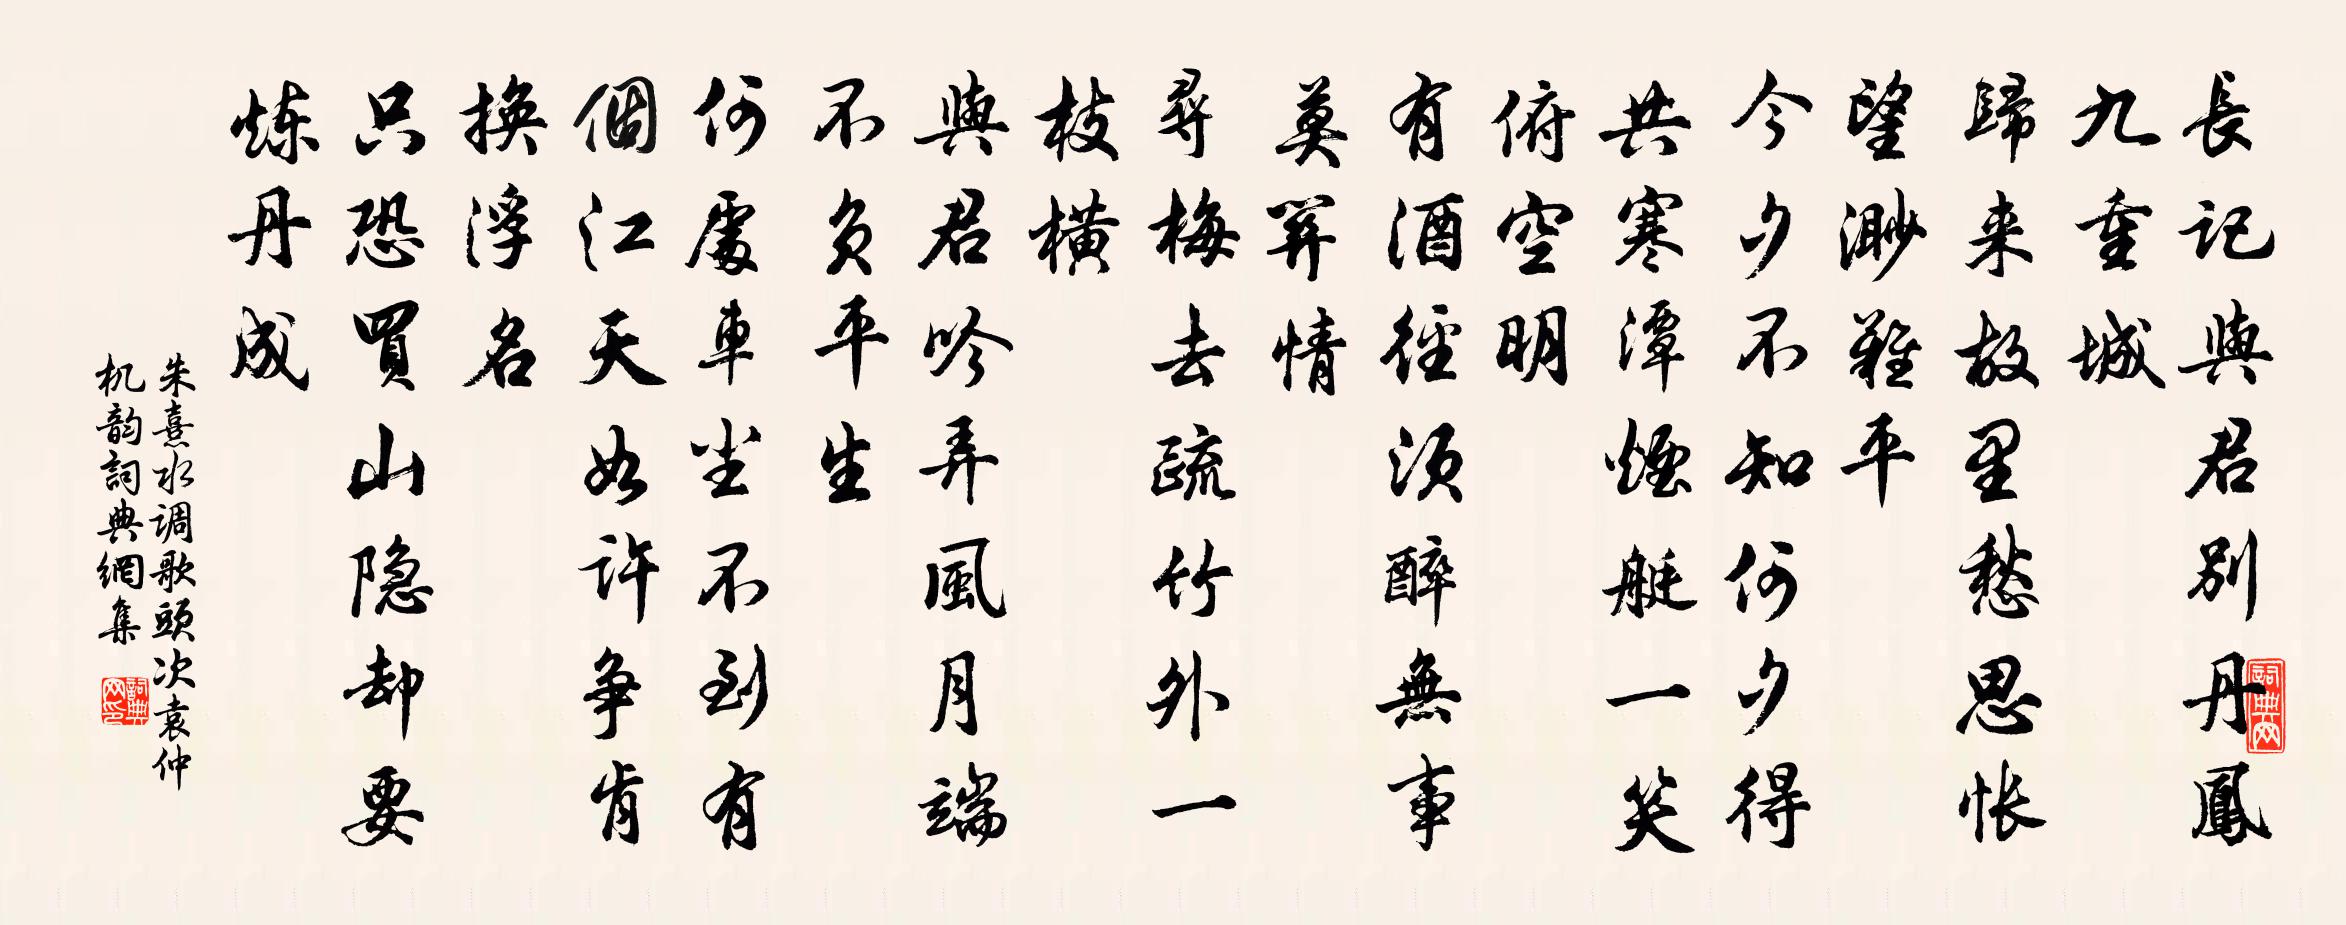 長記與君別丹鳳
九重城
歸来故里愁思悵
望渺難平
今夕不知何夕得
共寒潭煙艇一笑
俯空明
有酒徑須醉無事
莫関情
尋梅去疏竹外一
枝橫
與君吟弄風月端
不負平生
何處車尘不到有
個江天如許争肯
換浮名
只恐買山隐却要
炼丹成
朱熹水调歌頭次袁仲
机韵詞典網集
詞典网
詞典网印